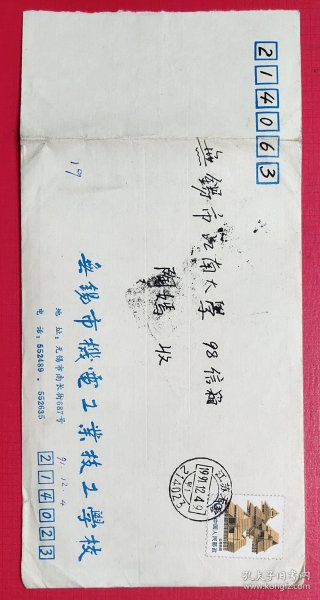 214063
無锡市江南大學 98信箱
陶嫣 收
19
無锡市機電工業技工學校
地址:无锡市南长街687号
电话:552489.552635
91.12.4
214023
江苏
1991.12.4
214023
中国人民邮政
孔夫子旧书网